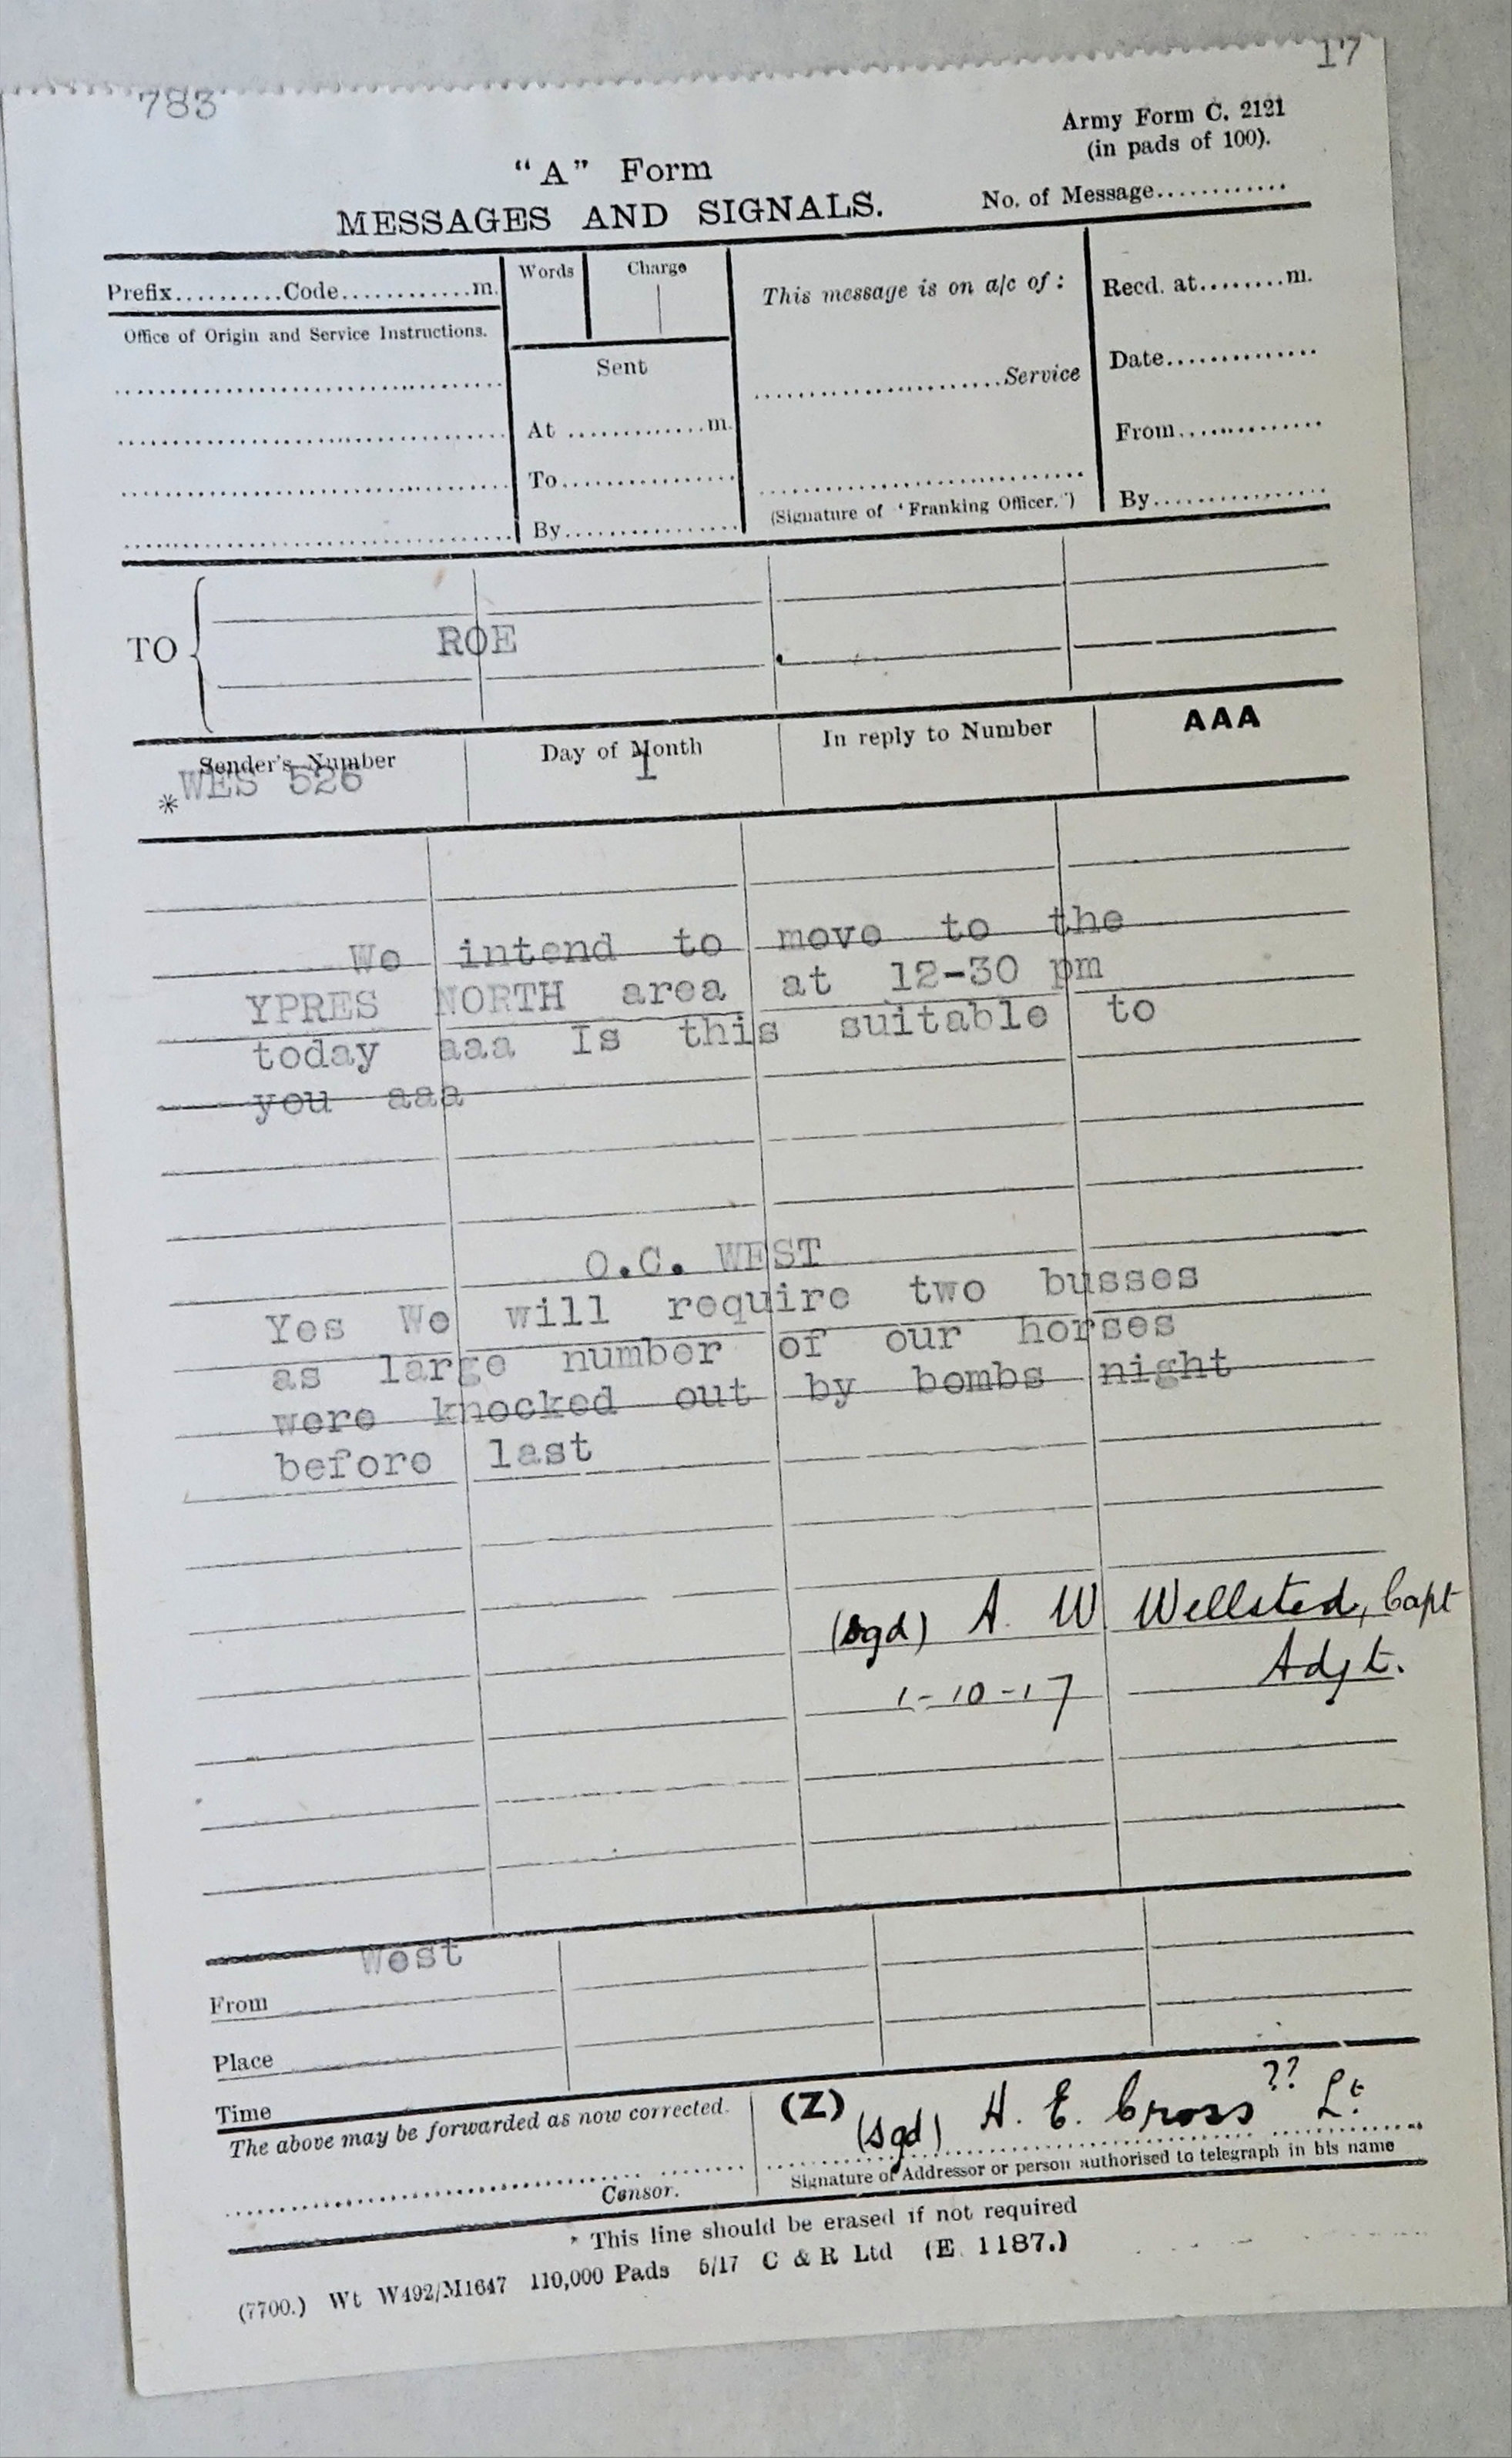 783
17
Army Form C. 2121
(in pads of 100).
"A" Form
MESSAGES AND SIGNALS.
No. of Message............
Prefix..........Code............m.
Words
Charge
This message is on a/c of :
Recd. at........m.
Office of Origin and Service Instructions.
Sent
Date..............
......................Service
At ............m.
From..............
To...............
(Signature of "Franking Officer.")
By...............
By................
TO
ROE
Sender's Number
Day of Month
In reply to Number
AAA
* WES 526
1
We intend to move to the
YPRES NORTH area at 12-30 pm
today aaa Is this suitable to
you aaa
O.C. WEST
Yes We will require two busses
as large number of our horses
were knocked out by bombs night
before last
(sgd) A. W. Wellsted, Capt
Adjt.
1-10-17
West
From
Place
Time
The above may be forwarded as now corrected.
(Z)
(sgd) H. E. Cross ?? Lt
Censor.
Signature of Addressor or person authorised to telegraph in his name
* This line should be erased if not required
(7700.) Wt W492/M1647 110,000 Pads 5/17 C & R Ltd (E. 1187.)